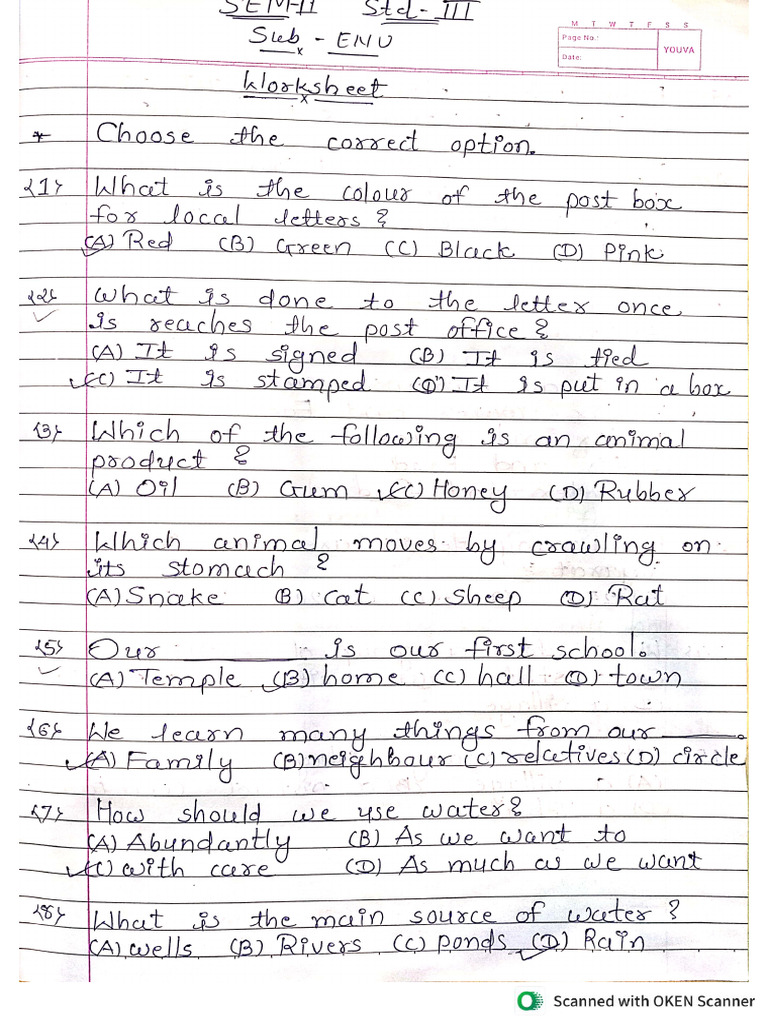 SEM-II Std-III
M T W T F S S
Page No.:
Sub - ENV
YOUVA
Date:
Worksheet
* Choose the correct option.
(1) What is the colour of the post box
for local letters?
(A) Red (B) Green (C) Black (D) Pink
(2) What is done to the letter once
is reaches the post office?
(A) It is signed (B) It is tied
(C) It is stamped (D) It is put in a box
(3) Which of the following is an animal
product?
(A) Oil (B) Gum (C) Honey (D) Rubber
(4) Which animal moves by crawling on
its stomach?
(A) Snake (B) cat (C) sheep (D) Rat
(5) Our ________ is our first school.
(A) Temple (B) home (C) hall (D) town
(6) We learn many things from our ____.
(A) Family (B) neighbour (C) relatives (D) circle
(7) How should we use water?
(A) Abundantly (B) As we want to
(C) with care (D) As much as we want
(8) What is the main source of water?
(A) wells (B) Rivers (C) ponds (D) Rain
Scanned with OKEN Scanner